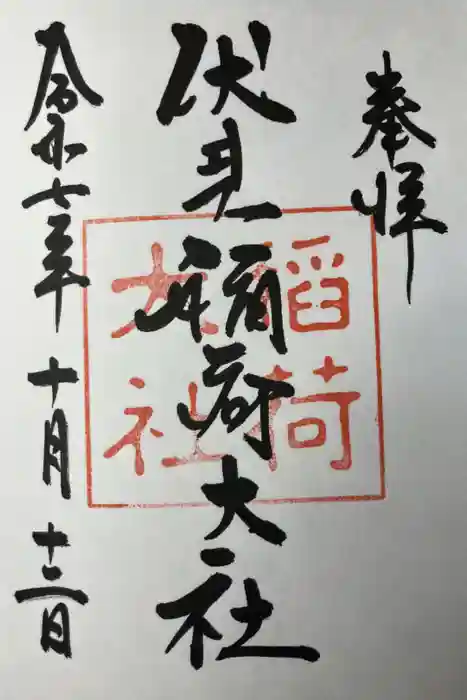 奉拝
伏見稲荷大社
令和七年十月十三日
稲荷
大社